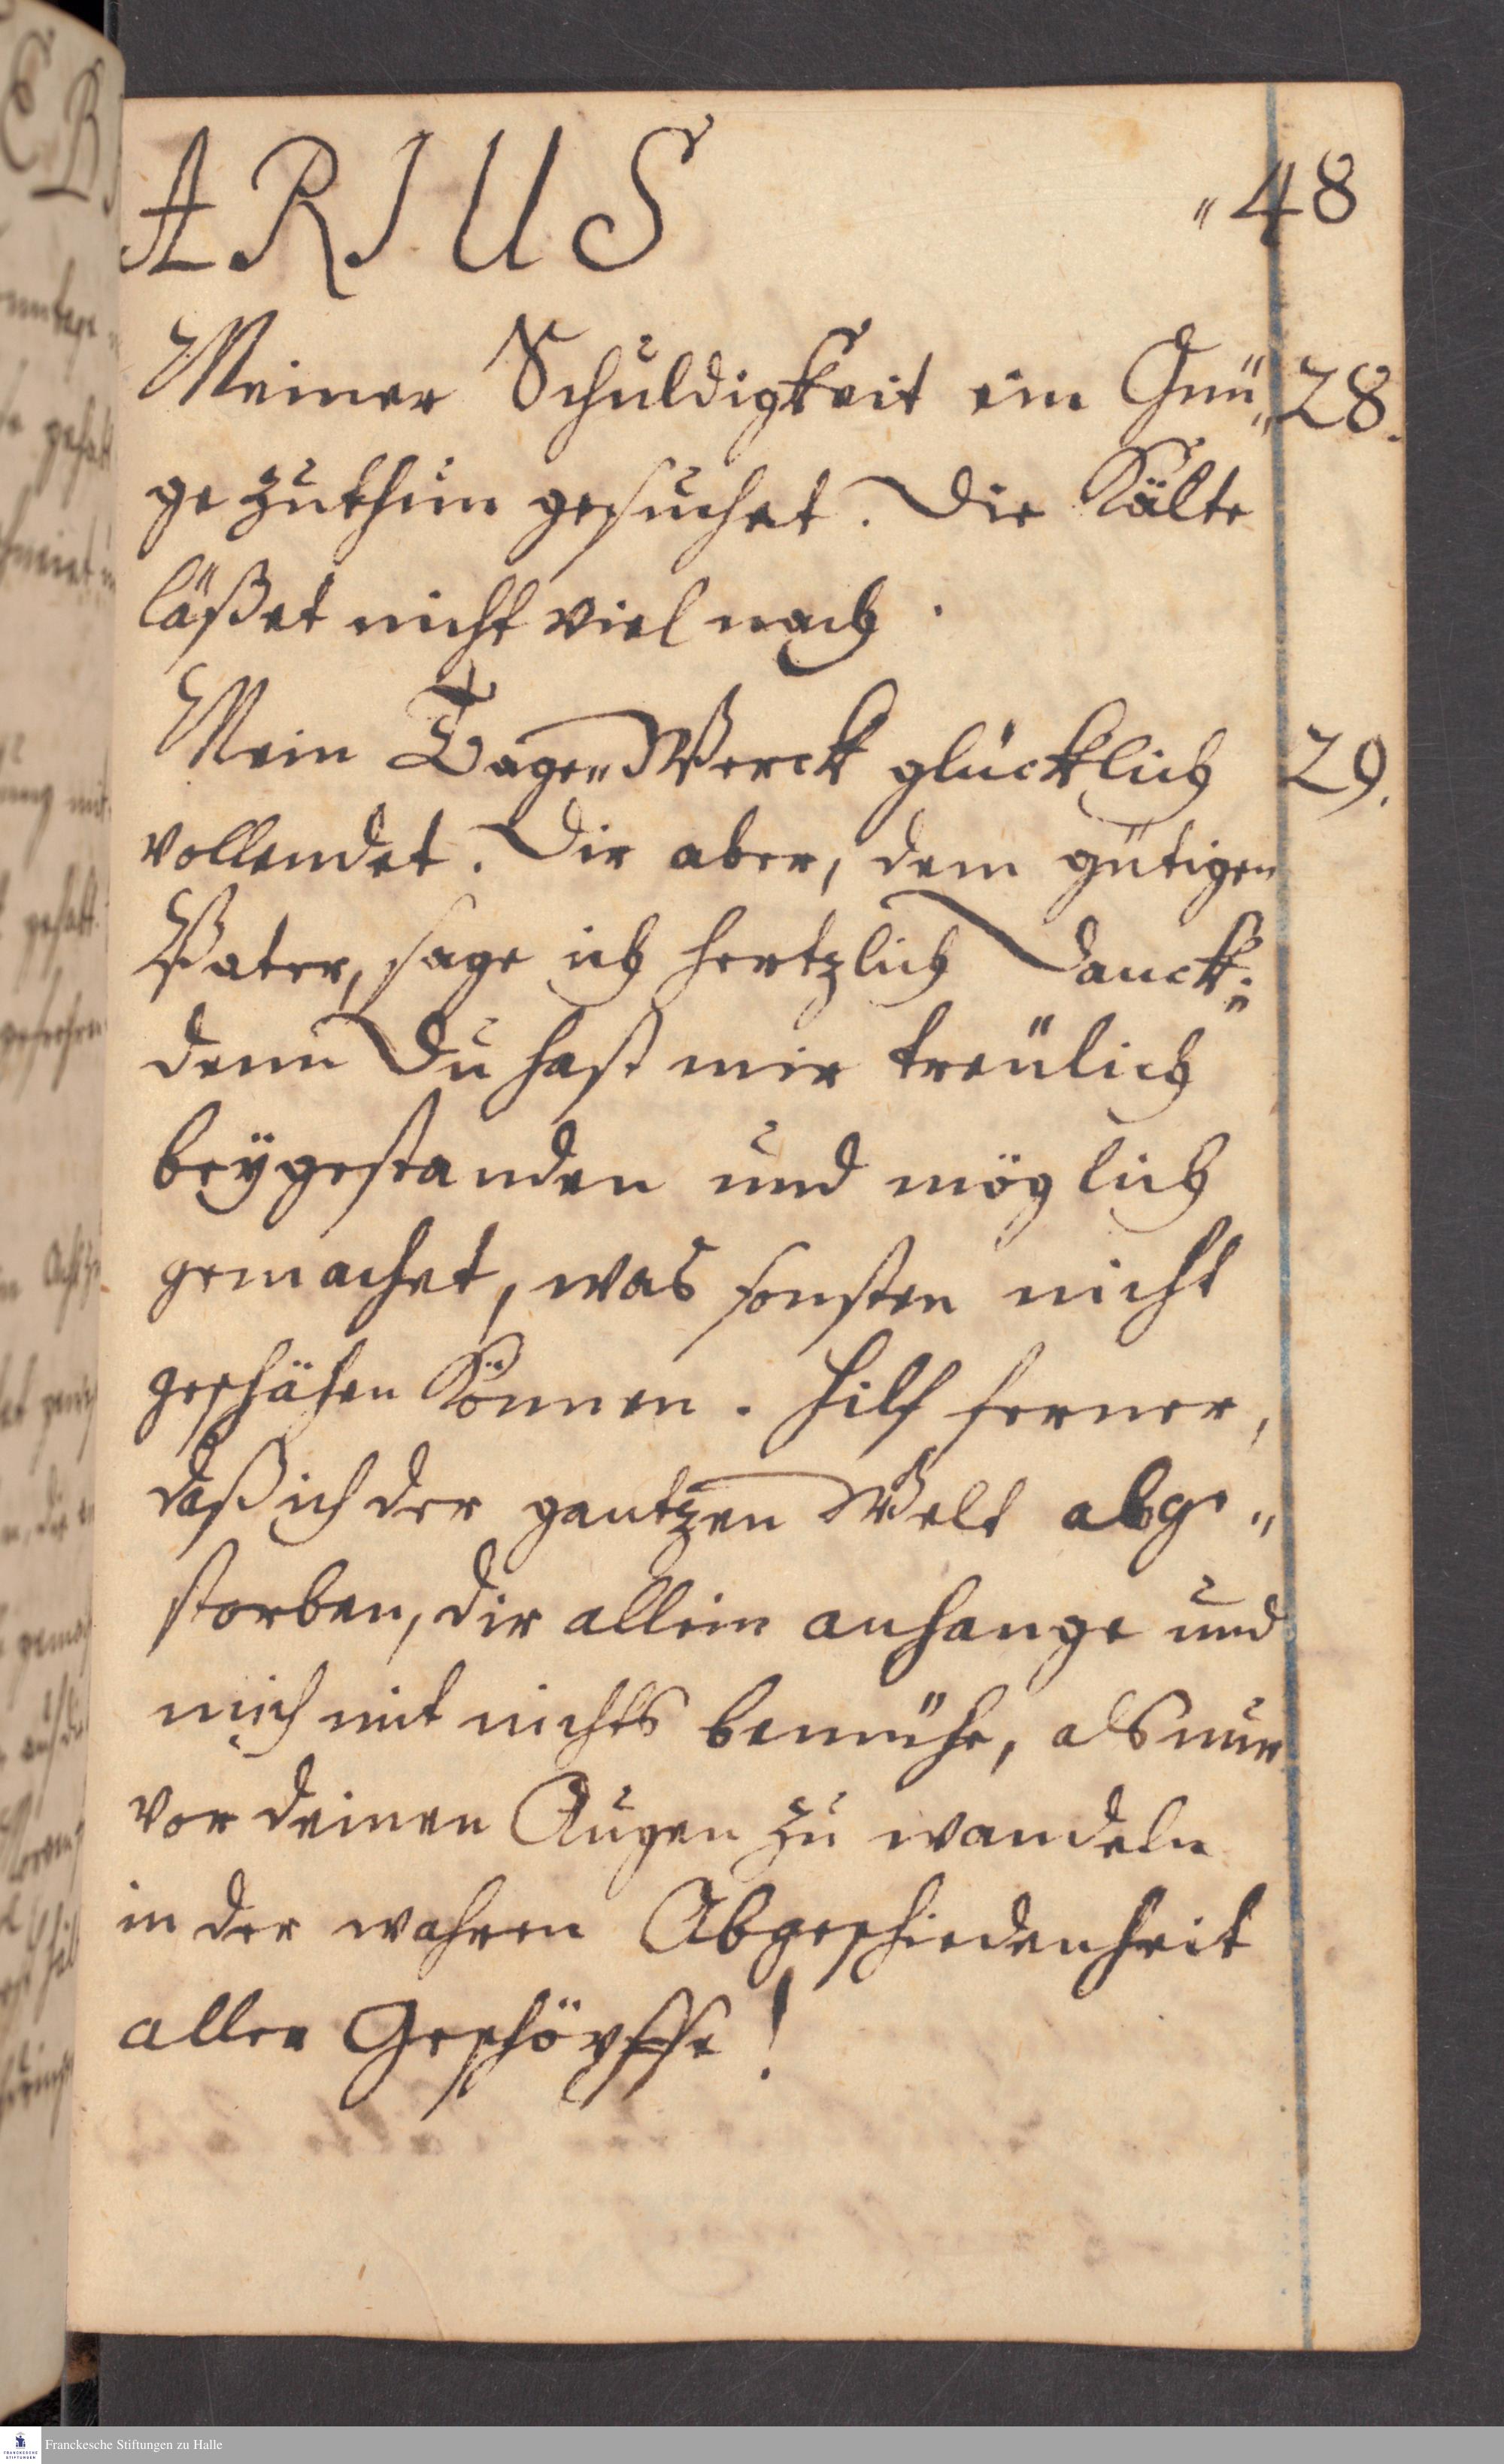 ARIUS „48
Meiner Schuldigkeit ein Gnü„ 28.
ge zuthun gesuchet. Die Kälte
läßet nicht viel nach.
Mein Tage„Werck glücklich 29.
vollendet. Dir aber, dem gütigen
Vater, sage ich hertzlich Danck:
denn Du hast mir treülich
beÿgestanden und möglich
gemachet, was sonsten nicht
geschähen Können. Hilf ferner,
daß ich der gantzen Welt abge„
storben, dir allein anhange und
mich mit nichts bemühe, als nur
vor deinen Augen zu wandeln
in der wahren Abgeschiedenheit
aller Geschöpffe!
FRANCKESCHE
STIFTUNGEN
Franckesche Stiftungen zu Halle